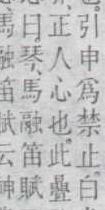 也引申爲禁止白
正人心也此疊
曰琴馬融笛賦
馬融笛賦云神